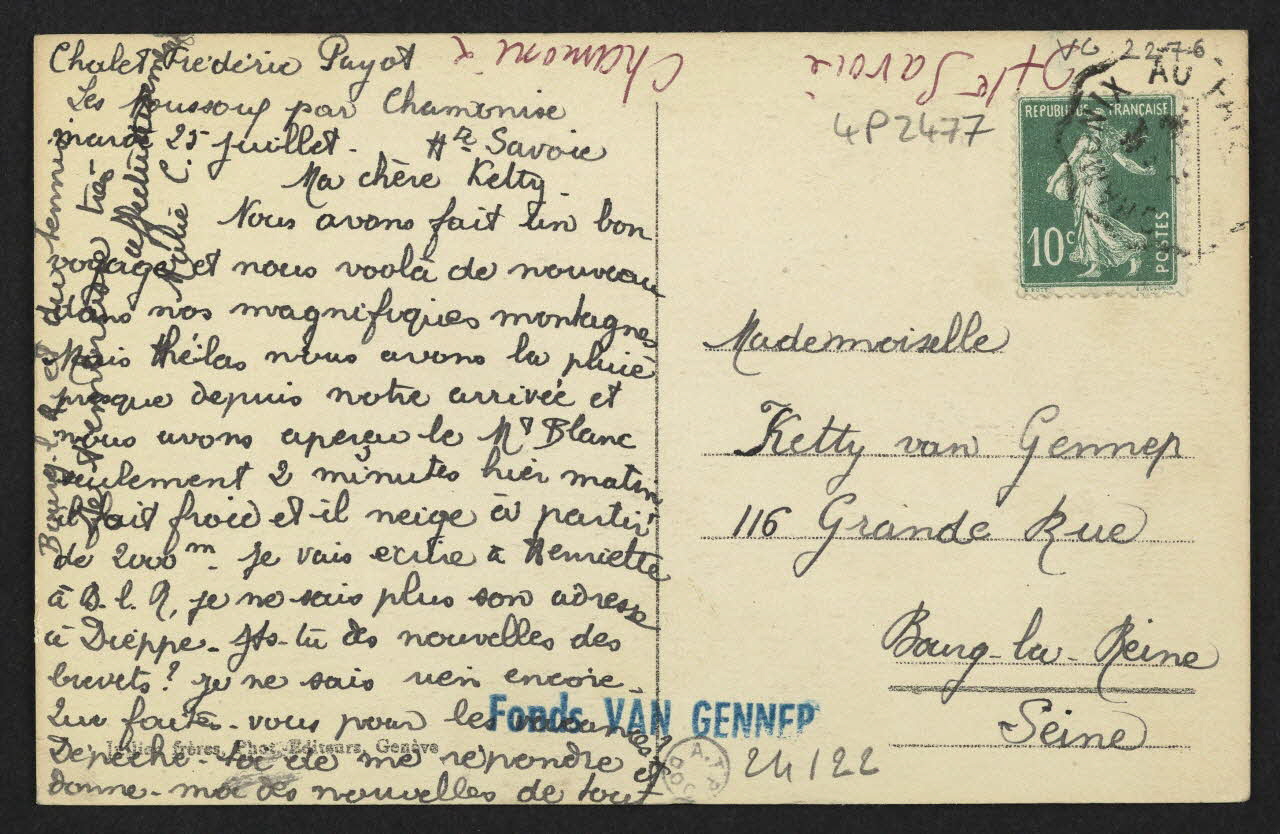 Chalet Frédéric Payot
Les par Chamonise
mardi 25 juillet. Hte Savoie
Ma chère Ketty.
Nous avons fait un bon
voyage et nous voolà de nouveau
dans nos magnifiques montagnes
Mais hélas nous avons la pluie
presque depuis notre arrivée et
nous avons aperçu le Mt Blanc
seulement 2 minutes hier matin
il fait froid et il neige à partir
de 2000m. Je vais ecrire à Henriette
à B. l. R, je ne sais plus son adresse
à Dieppe. As-tu des nouvelles des
brevets? je ne sais rien encore.
Que faites-vous pour les vacances?
Depêche-toi de me répondre et
donne-moi des nouvelles de tout
Bourg-l. R. et du tennis
Je t'embrasse très
affectueusement
Chamonix
Hte Savoie
VG 22-7-6
4P2477
REPUBLIQUE FRANÇAISE
10c
POSTES
CHAMONIX AU
Mademoiselle
Ketty van Gennep
116 Grande Rue
Bourg-la-Reine
Seine
Fonds VAN GENNEP
Jullien frères, Phot.-Editeurs, Genève
A.T.P.
24/22